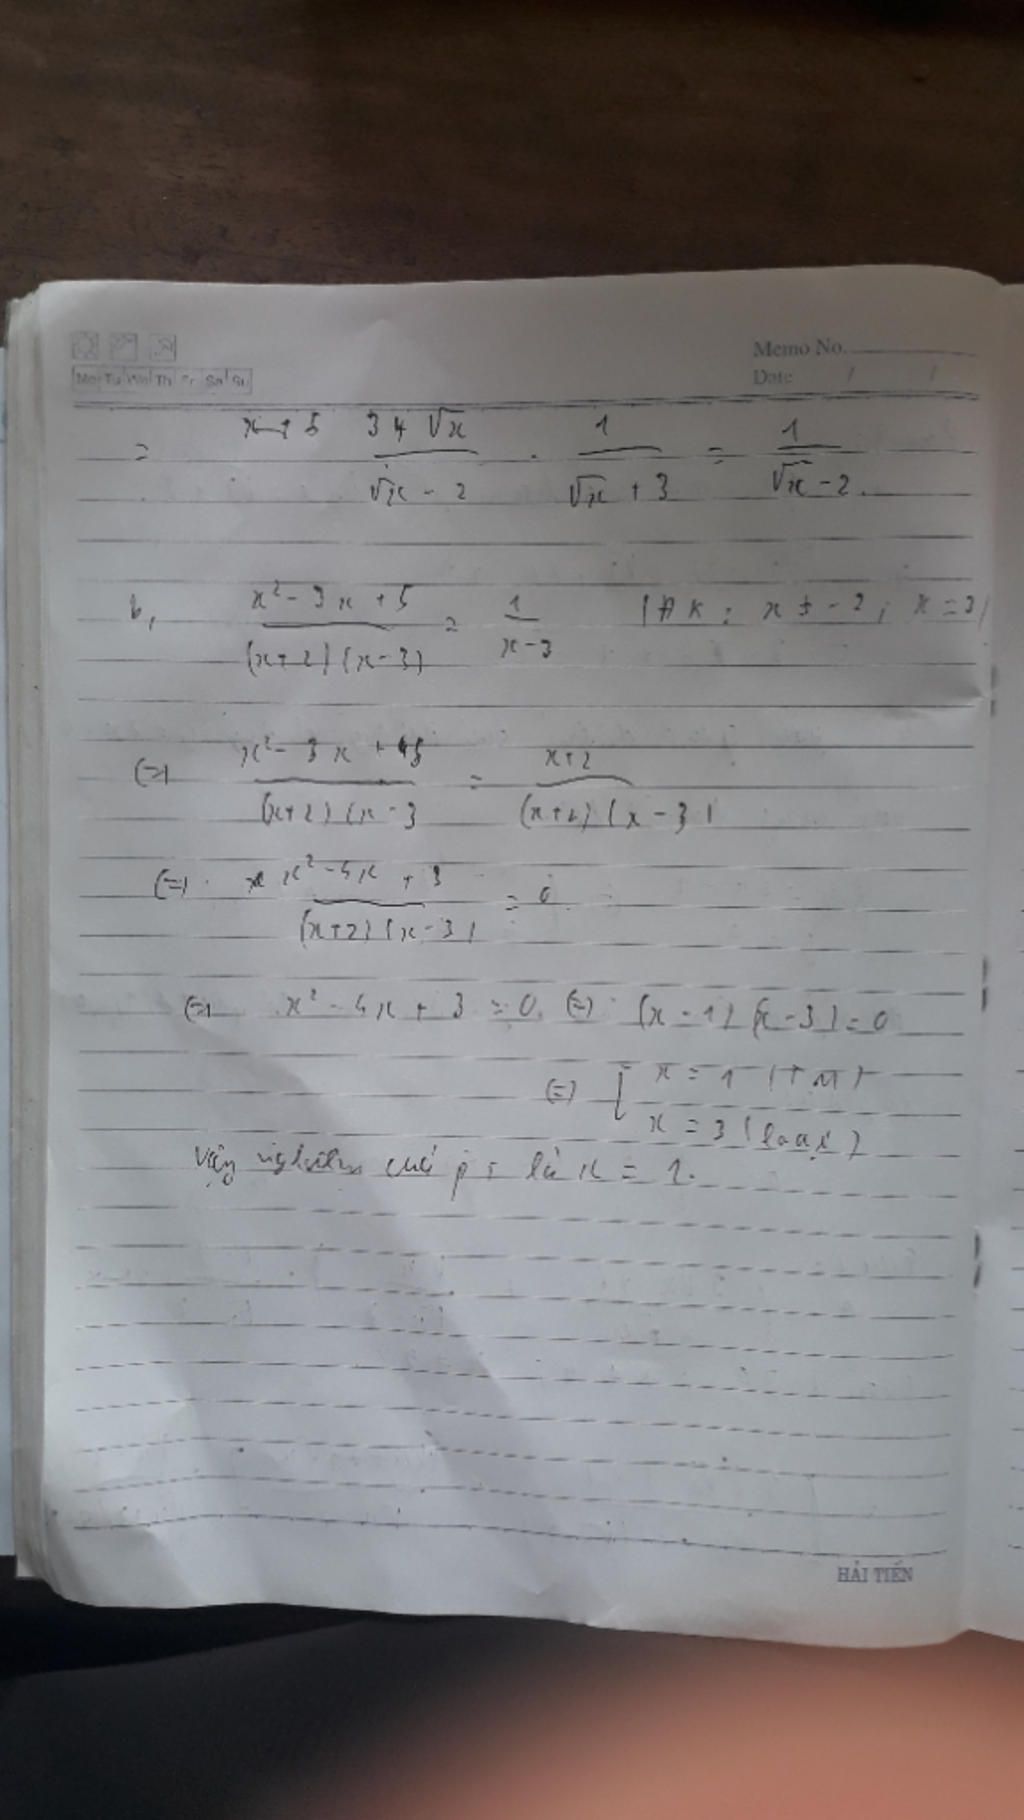 Memo No.
Mo Tu We Th Fr Sa Su
Date / /
= x+5 3+√x / √x - 2 . 1 / √x + 3 = 1 / √x - 2.
b, x² - 3x + 5 / (x+2)(x-3) = 1 / x-3 (ĐK: x ≠ -2; x = 3)
(=) x² - 3x + 5 / (x+2)(x-3 = x+2 / (x+2)(x-3)
(=) x² - 4x + 3 / (x+2)(x-3) = 0
(=) x² - 4x + 3 = 0. (=) (x-1)(x-3) = 0
(=) [ x = 1 (TM)
x = 3 (loại)
Vậy nghiệm của pt là x = 1.
HẢI TIẾN